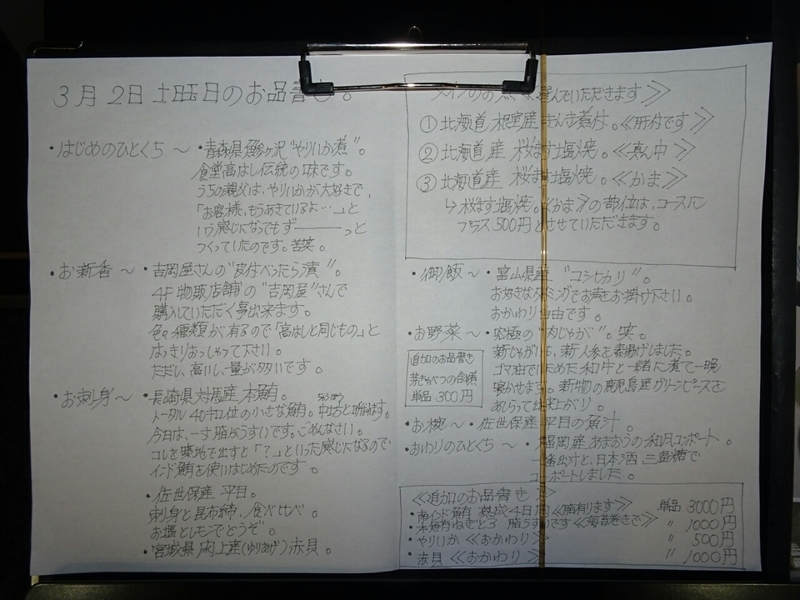 3月2日土曜日のお品書き。
・はじめのひとくち〜・青森県鰺ヶ沢"やりいか煮"。
食堂高はし伝統の味です。
うちの親父は、やりいかが大好きで、
「お客様、もうあきているよ…」と
いう感じになってもず―――っと
つくっていたのです。苦笑。
・お新香〜・吉岡屋さんの"皮付べったら漬"。
4F物販店舗の"吉岡屋"さんで
購入していただく事出来ます。
色々種類が有るので「高はしと同じもの」と
はっきりおっしゃって下さい。
ただし、高いし、量が多いです。
・お刺身〜・長崎県対馬産本鮪。
トータル40キロ位の小さな鮪。中坊と呼びます。
今日は、一寸脂がうすいです。ごめんなさい。
コレを築地で出すと「?」といった感じになるので
インド鮪を使いはじめたのです。
・佐世保産平目。
刺身と昆布締、食べ比べ。
お塩とレモンでどうぞ。
・宮城県閖上産(ゆりあげ)赤貝。
メインのお
選んでいただきます≫
①北海道根室産きんき煮付。≪肝付です≫
②北海道産桜ます塩焼。≪真ん中≫
③北海道産桜ます塩焼。≪かま≫
↳桜ます塩焼。≪かま≫の部位は、コースに
プラス500円とさせていただきます。
・御飯〜・富山県産"コシヒカリ"。
お好きなタイミングでお声をお掛け下さい。
おかわり自由です。
・お野菜〜・究極の"肉じゃが"。笑。
新じゃがいも、新人参を素揚げしました。
ゴマ油でいためた和牛と一緒に煮て一晩
寝かせます。新物の鹿児島産グリーンピースを
あしらって出来上がり。
追加のお品書き
芽きゃべつの含揚
単品300円
・お椀〜・佐世保産平目の魚汁。
・おわりのひとくち〜・福岡産あまおうの和風コンポート。
出汁と、日本酒、三盆糖で
コンポートしました。
≪追加のお品書き≫
・南インド鮪熟成4日目≪脂有ります≫ 単品3000円
・本鮪ねぎとろ 脂うすいです≪海苔巻きで≫ 〃1000円
・やりいか≪おかわり≫ 〃500円
・赤貝≪おかわり≫ 〃1000円